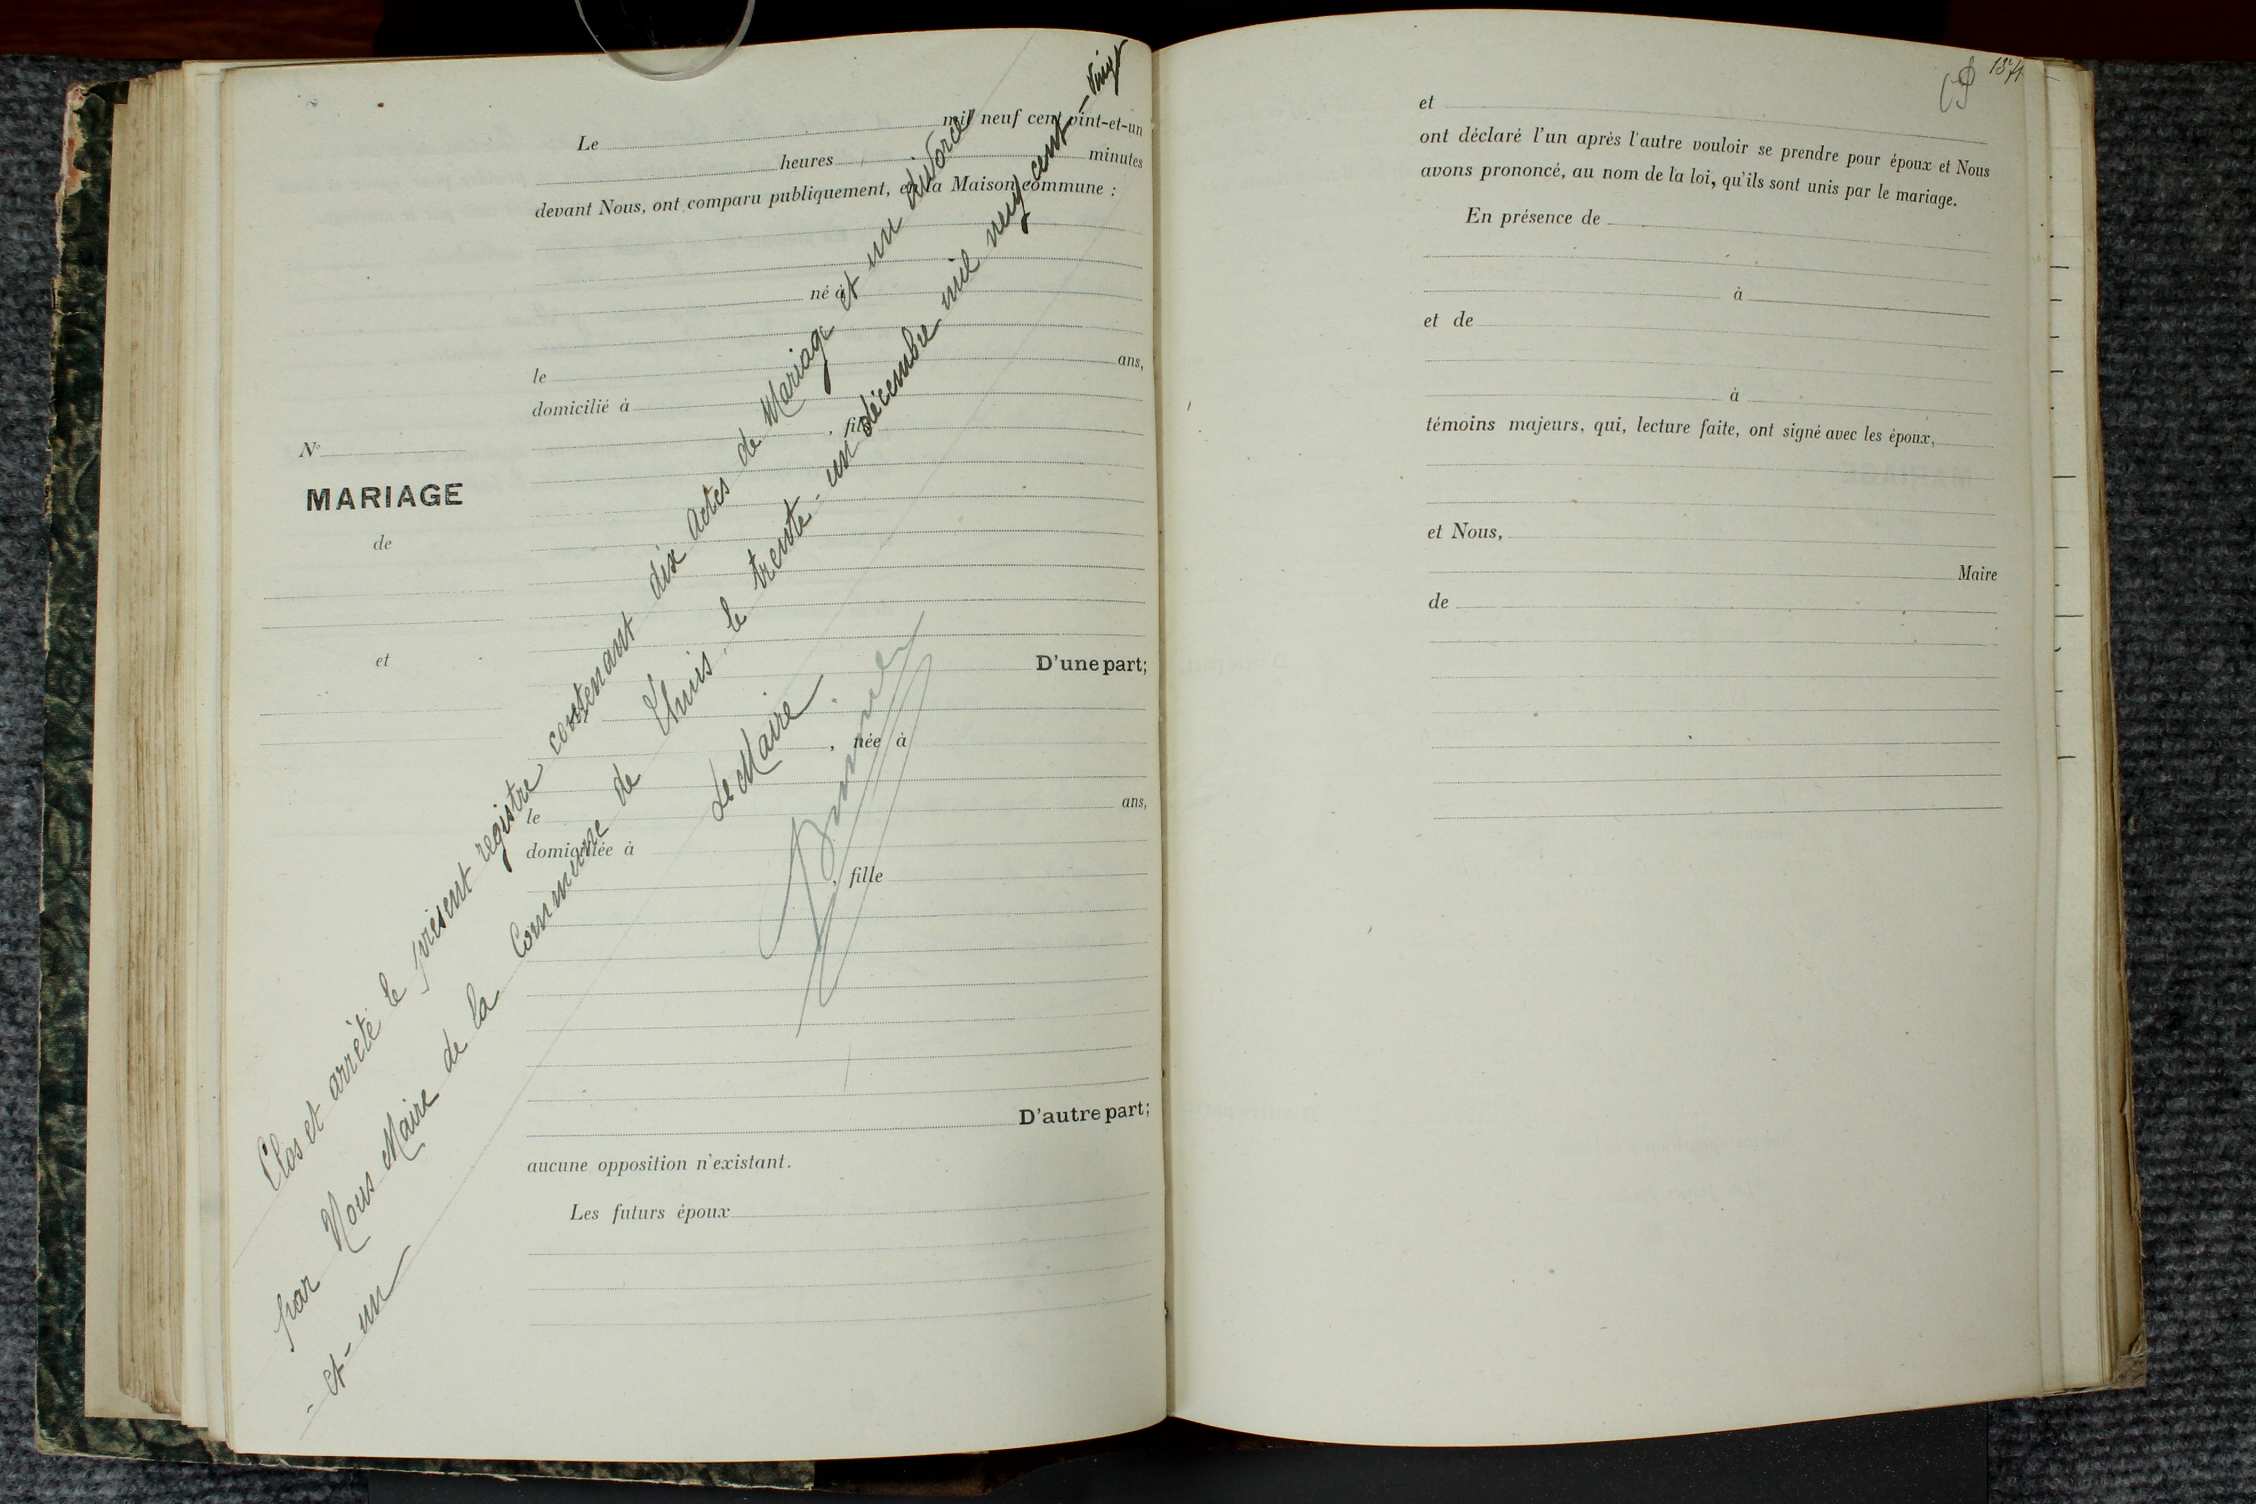 Le mil neuf cent vint-et-un
heures minutes
devant Nous, ont comparu publiquement, en la Maison commune :
né à
le ans,
domicilié à
, fils
N°
MARIAGE
de
et
D'une part;
, née à
le ans,
domiciliée à
, fille
D'autre part;
aucune opposition n'existant.
Les futurs époux
Clos et arrêté le présent registre contenant dix actes de Mariage et un divorce
par Nous Maire de la Commune de Thuis, le trente-un décembre mil neuf cent-vingt
-et-un
Le Maire
et
ont déclaré l'un après l'autre vouloir se prendre pour époux et Nous
avons prononcé, au nom de la loi, qu'ils sont unis par le mariage.
En présence de
à
et de
à
témoins majeurs, qui, lecture faite, ont signé avec les époux,
et Nous,
Maire
de